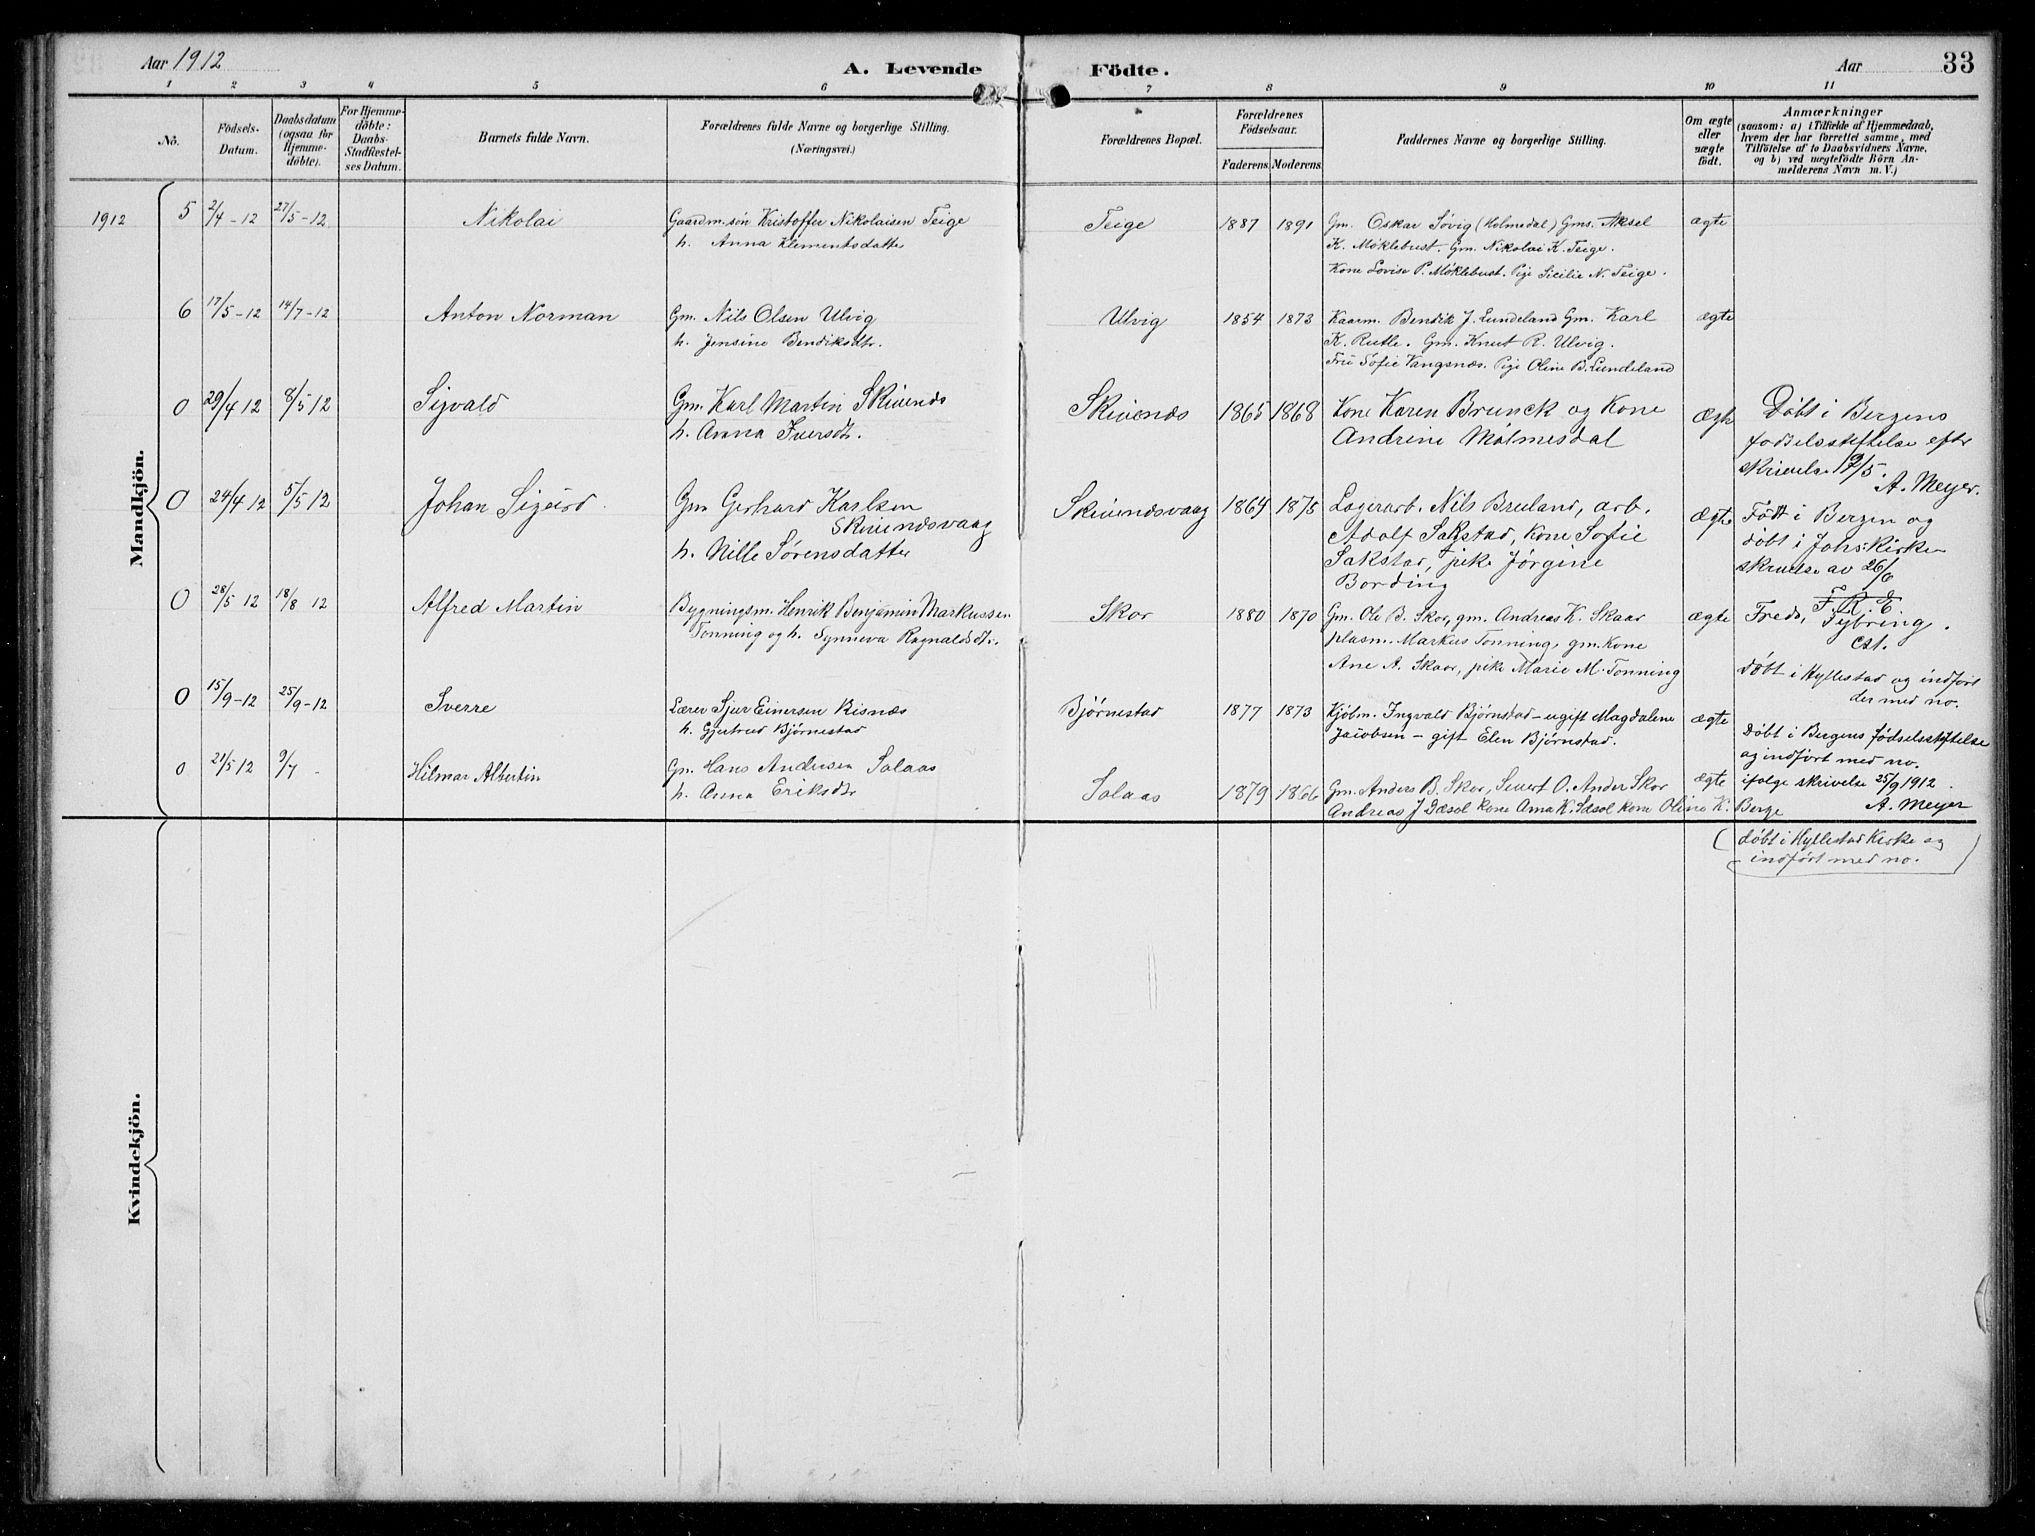 Aar 1912
A. Levende Födte.
Aar
33
1 2 3 4 5 6 7 8 9 10 11
No.
Födsels-
Datum.
Daabsdatum
(ogsaa for
Hjemme-
döbte).
For Hjemme-
döbte:
Daabs-
Stadfæstel-
ses Datum.
Barnets fulde Navn.
Forældrenes fulde Navne og borgerlige Stilling.
(Næringsvei.)
Forældrenes Bopæl.
Forældrenes
Födselsaar.
Faderens Moderens
Faddernes Navne og borgerlige Stilling.
Om ægte
eller
uægte
födt.
Anmærkninger
(saasom: a) i Tilfælde af Hjemmedaab,
hvem der har forrettet samme, med
Tilföielse af to Daabsvidners Navne,
og b) ved uægtefödte Börn An-
melderens Navn m. V.)
Mandkjön.
1912 5 2/4-12 27/5-12 Nikolai
Gaardm.søn Kristoffer Nikolaisen Teige
h. Anna Klementsdatter
Teige 1887 1891
Gm. Oskar Søvig (Holmedal) Gms. Aksel
K. Møklebust. Gm. Nikolai K. Teige.
Kone Lovise P. Møklebust. Pige Sicilie N. Teige.
ægte
6 17/5-12 14/7-12 Anton Norman
Gm. Nils Olsen Ulvig
h. Jensine Bendiksdtr.
Ulvig 1854 1873
Kaarm. Bendik J. Lundeland Gm. Karl
K. Rutle. Gm. Knut R. Ulvig.
Fru Sofie Vangsnæs. Pige Oline B. Lundeland
ægte
0 29/4 12 8/5 12 Sigvald
Gm. Karl Martin Skivenes
h. Anna Iversdtr.
Skivenes 1865 1868
Kone Karen Brunck og Kone
Andrine Mølmesdal
Ægte
Døbt i Bergens
fødselsstiftelse eftr
skrivelse 19/5
A. Meyer.
0 24/4 12 5/5 12 Johan Sigurd.
Gm Gerhard Karlsen
Skivendsvaag
h. Nille Sørensdatter
Skivendsvaag 1864 1875
Lagerarb. Nils Breiland, arb.
Adolf Sakstad, Kone Sofie
Sakstad, pike Jørgine
Bording
Ægte
Født i Bergen og
døbt i Johs.Kirken
skrivelse av 26/6
F.R.E.
0 28/5 12 18/8 12 Alfred Martin
Bygningsm. Henrik Benjamin Markussen
Tonning og h. Synneva Ragnaldsdtr.
Skor 1880 1870
Gm. Ole B. Skor, gm. Andreas K. Skaar
plasm. Markus Tonning, gm.kone
Ane A. Skaar, pike Marie M. Tonning
ægte
Freds, Fybring.
cst.
Døbt i Hyllestad og indført
der med no.
0 15/9-12 25/9-12 Sverre
Lærer Sjur Einersen Risnæs
h. Gjertrud Bjørnestad
Bjørnestad 1877 1873
Kjøbm. Ingvald Bjørnstad - ugift Magdalene
Jacobsen - gift Elen Bjørnstad.
ægte
Døbt i Bergens fødselsstiftelse
og indført med no.
ifølge skrivelse 25/9 1912.
A. Meyer
0 21/5 12 9/7 - Hilmar Albertin
Gm. Hans Andersen Salaas
h. Anna Eriksdtr
Salaas 1879 1866
Gm. Anders B. Skor, Severt O. Ander Skor
Andreas J Dæsol kone Anna K. Sæsol kone Oline K. Berge
ægte
(døbt i Hyllestad Kirke og
indført med no.)
Kvindekjön.